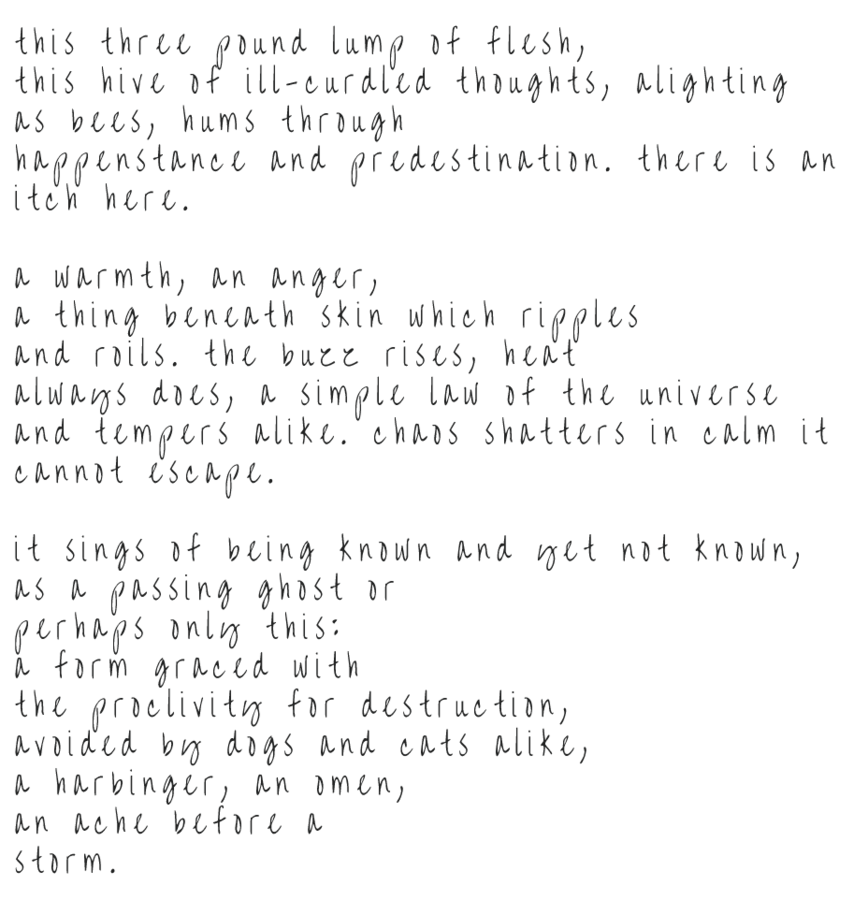 this three pound lump of flesh,
this hive of ill-curdled thoughts, alighting
as bees, hums through
happenstance and predestination. there is an
itch here.

a warmth, an anger,
a thing beneath skin which ripples
and roils. the buzz rises, heat
always does, a simple law of the universe
and tempers alike. chaos shatters in calm it
cannot escape.

it sings of being known and yet not known,
as a passing ghost or
perhaps only this:
a form graced with
the proclivity for destruction,
avoided by dogs and cats alike,
a harbinger, an omen,
an ache before a
storm.